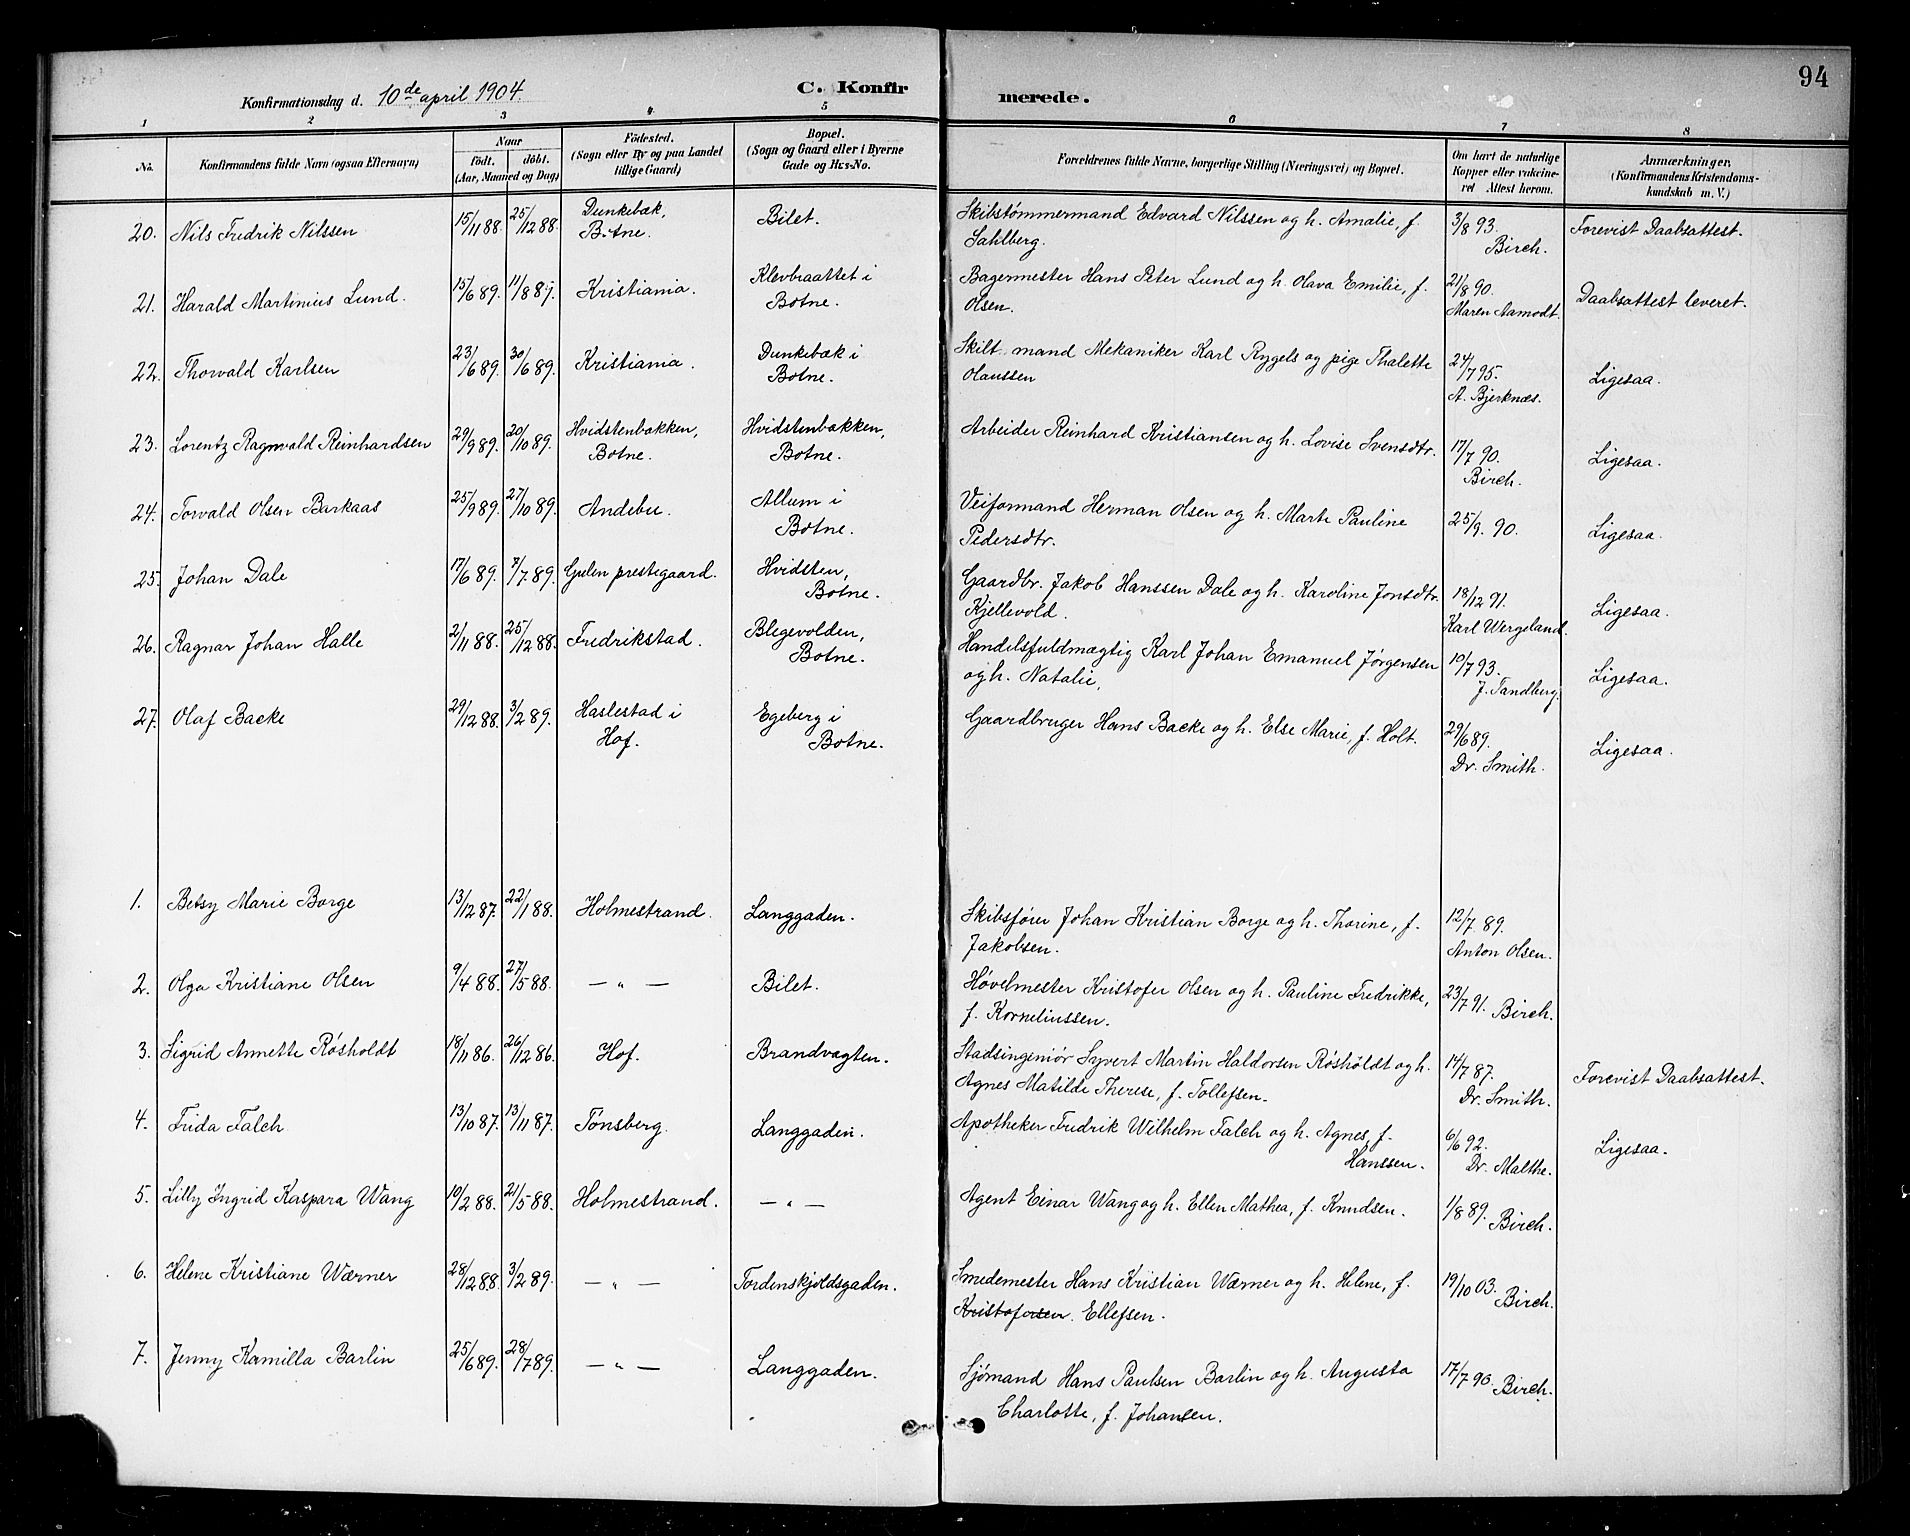 94
Konfirmationsdag d. 10de april 1904.
C. Konfirmerede.
1 2 3 4 5 6 7 8
No.
Konfirmandens fulde Navn (ogsaa Efternavn)
Naar
født. døbt.
(Aar, Maaned og Dag)
Fødested.
(Sogn eller By og paa Landet
tillige Gaard)
Bopæl.
(Sogn og Gaard eller i Byerne
Gade og Hus-No.
Forældrenes fulde Navne, borgerlige Stilling (Næringsvei) og Bopæl.
Om havt de naturlige
Kopper eller vakcine-
ret Attest herom.
Anmærkninger,
(Konfirmandens Kristendoms-
kundskab m. V.)
20. Nils Fredrik Nilssen 15/11 88. 25/12 88. Dunkebæk, Bilet. Skibstømmermand Edvard Nilssen og h. Amalie, f. 3/8 93. Forevist Daabsattest.
Botne. Sahlberg. Birch.
21. Harald Martinius Lund. 15/6 89. 11/8 89. Kristiania. Klevbraattet i Bagermester Hans Peter Lund og h. Olava Emilie, f. 21/8 90. Daabsattest leveret.
Botne. Olsen. Maren Aamodt.
22. Thorvald Karlsen 23/6 89. 30/6 89. Kristiania. Dunkebæk i mand Mekaniker Karl Rygels og pige Thalette 24/7 95. Ligesaa.
Botne. Olaussen A. Bjerknæs.
23. Lorentz Ragnvald Reinhardsen 29/9 89. 20/10 89. Hvidstenbakken, Hvidstenbakken, Arbeider Reinhard Kristiansen og h. Lovise Svensdtr. 17/7 90. Ligesaa.
Botne. Botne. Birch.
24. Torvald Olsen Barkaas 25/9 89. 27/10 89. Andebu. Allum i Veiformand Herman Olsen og h. Marte Pauline 25/9. 90. Ligesaa.
Botne. Pedersdtr.
25. Johan Dale 17/6 89. 7/7 89. Gulen prestegaard. Hvidsten, Gaardbr. Jakob Hanssen Dale og h. Karoline Jonsdtr. 18/12 91. Ligesaa.
Botne. Kjellevold. Karl Wergeland.
26. Ragnar Johan Halle 2/11 88. 25/12 88. Fredrikstad. Blegevolden, Handelsfuldmægtig Karl Johan Emanuel Jørgensen 10/7 93. Ligesaa.
Botne. og h. Natalie, J. Tandberg.
27. Olaf Backe 29/12 88. 3/2 89. Haslestad i Egeberg i Gaardbruger Hans Backe og h. Else Marie, f. Holt. 29/6 89. Ligesaa.
Hof. Botne. Dr. Smith.
1. Betsy Marie Borge 13/12 87. 22/1 88. Holmestrand. Langgaden. Skibsfører Johan Kristian Borge og h. Thorine, f. 12/7 89.
Jakobsen. Anton Olsen.
2. Olga Kristiane Olsen 9/4 88. 27/5 88. — " — Bilet. Høvelmester Kristofer Olsen og h. Pauline Fredrikke, 23/7 91. Birch.
f. Korneliussen.
3. Sigrid Annette Røsholdt 18/11 86. 26/12 86. Hof. Brandvagten. Stadsingeniør Syvert Martin Haldorsen Røsholdt og h. 14/7 87. Forevist Daabsattest.
Agnes Matilde Therese, f. Tollefsen. Dr. Smith.
4. Frida Falch. 13/10 87. 13/11 87. Tønsberg. Langgaden. Apotheker Fredrik Wilhelm Falch og h. Agnes, f. 6/6 92. Ligesaa.
Hanssen. Dr. Malthe.
5. Lilly Ingrid Kaspara Wang 19/2 88. 21/5 88. Holmestrand. — " — Agent Einar Wang og h. Ellen Mathea, f. Knudsen. 1/8 89. Birch.
6. Helene Kristiane Wærner 28/12 88. 3/2 89. — " — Tordenskjoldsgaden. Smedemester Hans Kristian Wærner og h. Helene, f. 19/10 03. Birch.
Kristofersen. Ellefsen.
7. Jenny Kamilla Barlin 25/6 89. 28/7 89. — " — Langgaden. Sjømand Hans Paulsen Barlin og h. Augusta 17/7 90. Birch.
Charlotte, f. Johansen.